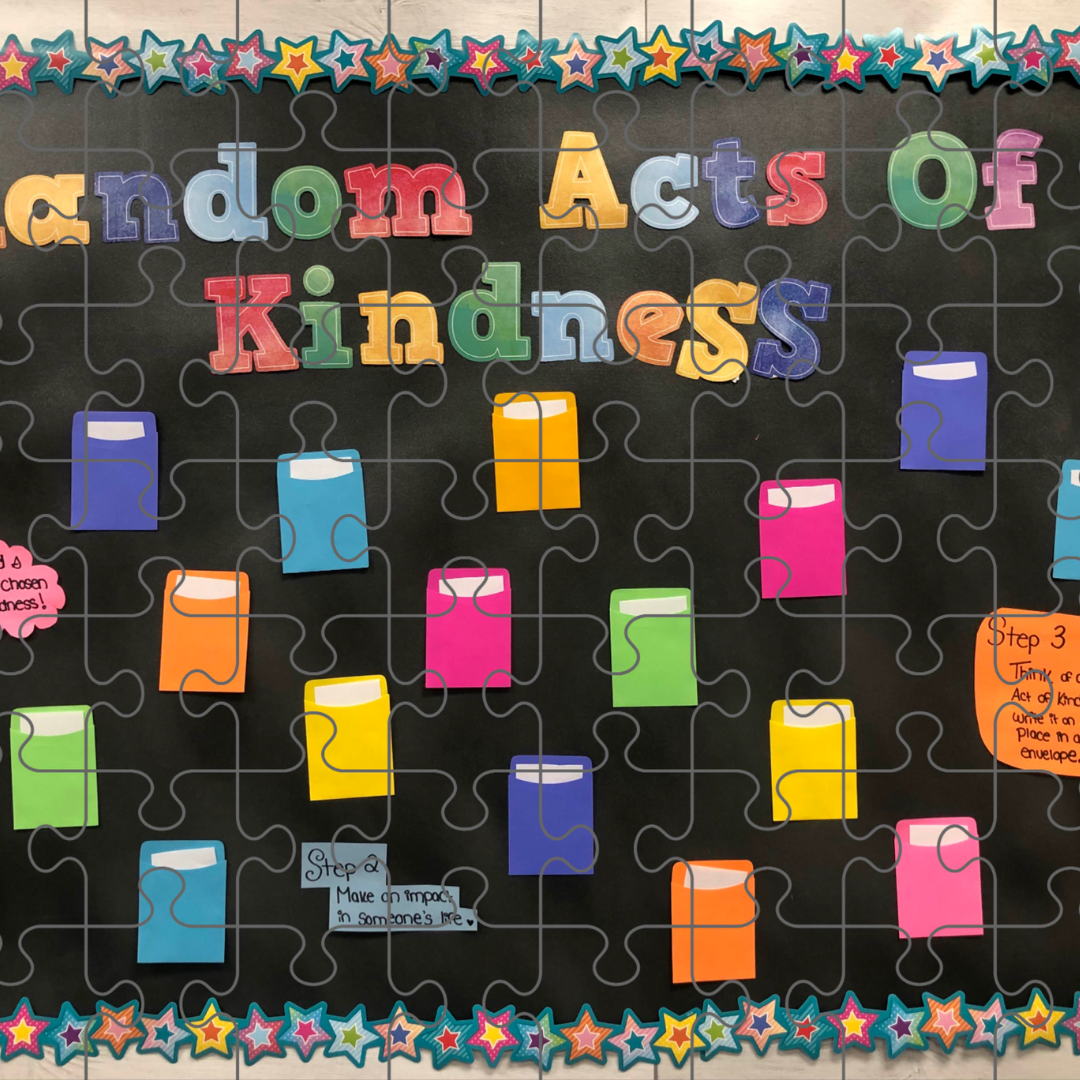 andom Acts Of
Kindness
chosen
dness!
Step 3
Think of a
Act of Kind
write it on
place in a
envelope.
Step 2
Make an impact
in someone's life